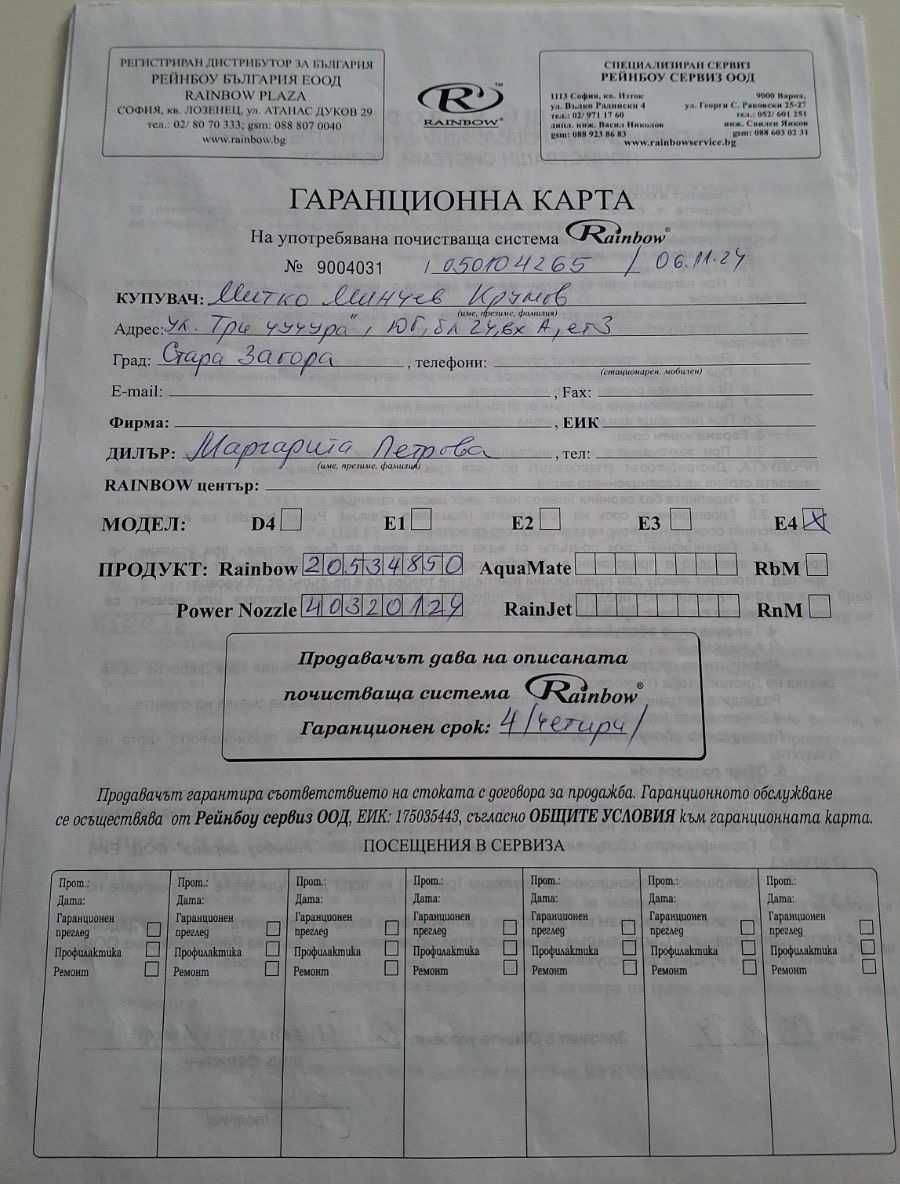 РЕГИСТРИРАН ДИСТРИБУТОР ЗА БЪЛГАРИЯ
РЕЙНБОУ БЪЛГАРИЯ ЕООД
RAINBOW PLAZA
СОФИЯ, кв. ЛОЗЕНЕЦ, ул. АТАНАС ДУКОВ 29
тел.: 02/ 80 70 333; gsm: 088 807 0040
www.rainbow.bg
R ™
RAINBOW®
СПЕЦИАЛИЗИРАН СЕРВИЗ
РЕЙНБОУ СЕРВИЗ ООД
1113 София, кв. Изток 9000 Варна,
ул. Вълко Радински 4 ул. Георги С. Раковски 25-27
тел.: 02/ 971 17 60 тел.: 052/ 601 251
дипл. инж. Васил Николов инж. Свилен Янков
gsm: 088 923 86 83 gsm: 088 603 02 31
www.rainbowservice.bg
ГАРАНЦИОННА КАРТА
На употребявана почистваща система Rainbow®
№ 9004031 / 050104265 / 06.11.24
КУПУВАЧ: Митко Минчев Крумов
(име, презиме, фамилия)
Адрес: ул. Три чучура", Юг, бл 24, вх А, ет 3
Град: Стара Загора, телефони:
(стационарен, мобилен)
E-mail: , Fax:
Фирма: , ЕИК
ДИЛЪР: Маргарита Петрова, тел:
(име, презиме, фамилия)
RAINBOW център:
МОДЕЛ: D4 E1 E2 E3 E4 X
ПРОДУКТ: Rainbow 20534850 AquaMate RbM
Power Nozzle 40320124 RainJet RnM
Продавачът дава на описаната
почистваща система Rainbow®
Гаранционен срок: 4 /четири/
Продавачът гарантира съответствието на стоката с договора за продажба. Гаранционното обслужване
се осъществява от Рейнбоу сервиз ООД, ЕИК: 175035443, съгласно ОБЩИТЕ УСЛОВИЯ към гаранционната карта.
ПОСЕЩЕНИЯ В СЕРВИЗА
Прот.: Прот.: Прот.: Прот.: Прот.: Прот.: Прот.:
Дата: Дата: Дата: Дата: Дата: Дата: Дата:
Гаранционен Гаранционен Гаранционен Гаранционен Гаранционен Гаранционен Гаранционен
преглед преглед преглед преглед преглед преглед преглед
Профилактика Профилактика Профилактика Профилактика Профилактика Профилактика Профилактика
Ремонт Ремонт Ремонт Ремонт Ремонт Ремонт Ремонт